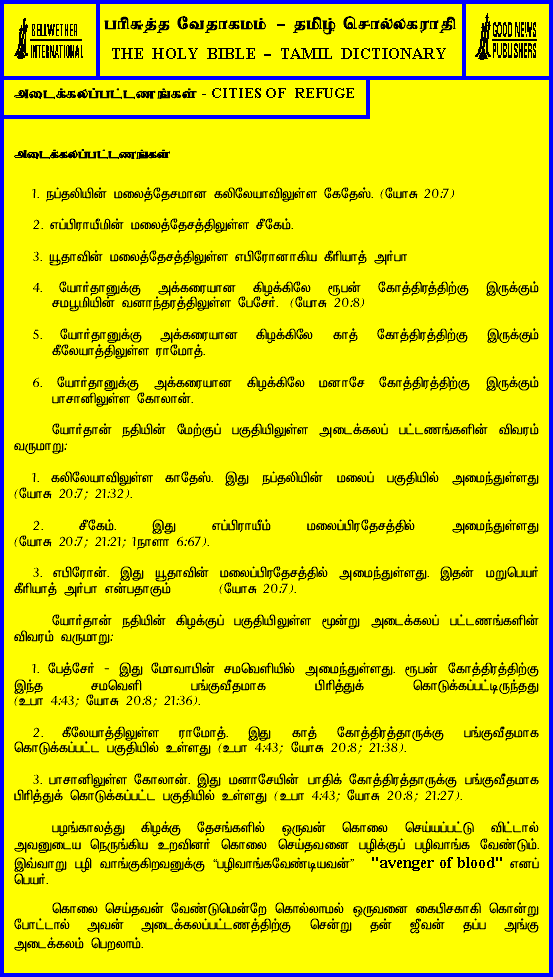 BELLWETHER
INTERNATIONAL
பரிசுத்த வேதாகமம் – தமிழ் சொல்லகராதி
THE HOLY BIBLE – TAMIL DICTIONARY
GOOD NEWS
PUBLISHERS
அடைக்கலப்பட்டணங்கள் - CITIES OF REFUGE
அடைக்கலப்பட்டணங்கள்
1. நப்தலியின் மலைத்தேசமான கலிலேயாவிலுள்ள கேதேஸ். (யோசு 20:7)
2. எப்பிராயீமின் மலைத்தேசத்திலுள்ள சீகேம்.
3. யூதாவின் மலைத்தேசத்திலுள்ள எபிரோனாகிய கீரியாத் அர்பா
4. யோர்தானுக்கு அக்கரையான கிழக்கிலே ரூபன் கோத்திரத்திற்கு இருக்கும்
சமபூமியின் வனாந்தரத்திலுள்ள பேசேர். (யோசு 20:8)
5. யோர்தானுக்கு அக்கரையான கிழக்கிலே காத் கோத்திரத்திற்கு இருக்கும்
கீலேயாத்திலுள்ள ராமோத்.
6. யோர்தானுக்கு அக்கரையான கிழக்கிலே மனாசே கோத்திரத்திற்கு இருக்கும்
பாசானிலுள்ள கோலான்.
யோர்தான் நதியின் மேற்குப் பகுதியிலுள்ள அடைக்கலப் பட்டணங்களின் விவரம்
வருமாறு:
1. கலிலேயாவிலுள்ள காதேஸ். இது நப்தலியின் மலைப் பகுதியில் அமைந்துள்ளது
(யோசு 20:7; 21:32).
2. சீகேம். இது எப்பிராயீம் மலைப்பிரதேசத்தில் அமைந்துள்ளது
(யோசு 20:7; 21:21; 1நாளா 6:67).
3. எபிரோன். இது யூதாவின் மலைப்பிரதேசத்தில் அமைந்துள்ளது. இதன் மறுபெயர்
கீரியாத் அர்பா என்பதாகும் (யோசு 20:7).
யோர்தான் நதியின் கிழக்குப் பகுதியிலுள்ள மூன்று அடைக்கலப் பட்டணங்களின்
விவரம் வருமாறு:
1. பேத்சேர் - இது மோவாபின் சமவெளியில் அமைந்துள்ளது. ரூபன் கோத்திரத்திற்கு
இந்த சமவெளி பங்குவீதமாக பிரித்துக் கொடுக்கப்பட்டிருந்தது
(உபா 4:43; யோசு 20:8; 21:36).
2. கீலேயாத்திலுள்ள ராமோத். இது காத் கோத்திரத்தாருக்கு பங்குவீதமாக
கொடுக்கப்பட்ட பகுதியில் உள்ளது (உபா 4:43; யோசு 20:8; 21:38).
3. பாசானிலுள்ள கோலான். இது மனாசேயின் பாதிக் கோத்திரத்தாருக்கு பங்குவீதமாக
பிரித்துக் கொடுக்கப்பட்ட பகுதியில் உள்ளது (உபா 4:43; யோசு 20:8; 21:27).
பழங்காலத்து கிழக்கு தேசங்களில் ஒருவன் கொலை செய்யப்பட்டு விட்டால்
அவனுடைய நெருங்கிய உறவினர் கொலை செய்தவனை பழிக்குப் பழிவாங்க வேண்டும்.
இவ்வாறு பழி வாங்குகிறவனுக்கு “பழிவாங்கவேண்டியவன்” "avenger of blood" எனப்
பெயர்.
கொலை செய்தவன் வேண்டுமென்றே கொல்லாமல் ஒருவனை கைபிசகாகி கொன்று
போட்டால் அவன் அடைக்கலப்பட்டணத்திற்கு சென்று தன் ஜீவன் தப்ப அங்கு
அடைக்கலம் பெறலாம்.